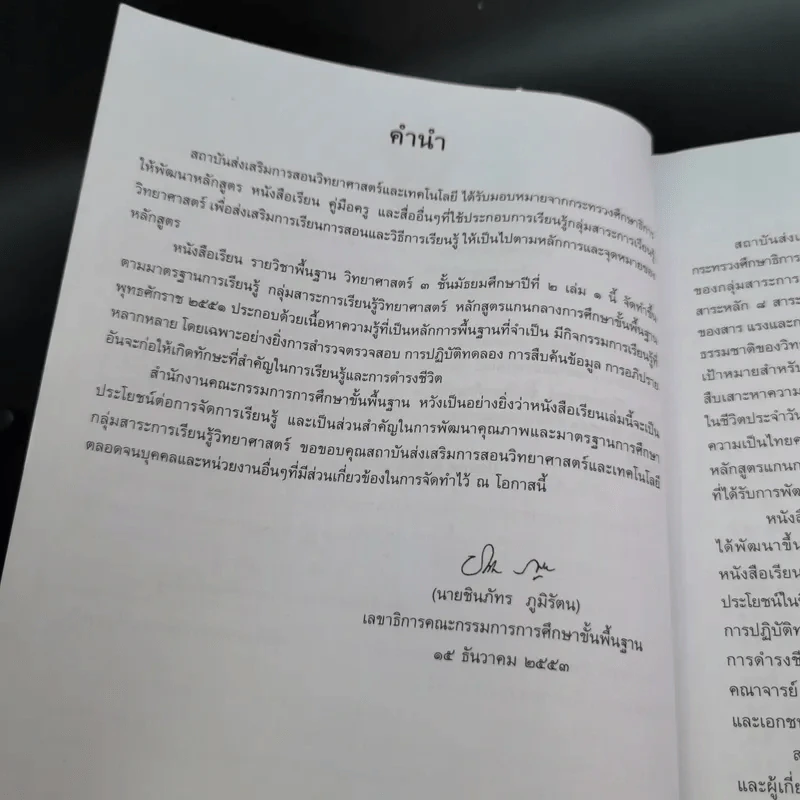 คำนำ
สถาบันส่งเสริมการสอนวิทยาศาสตร์และเทคโนโลยี ได้รับมอบหมายจากกระทรวงศึกษาธิการ
ให้พัฒนาหลักสูตร หนังสือเรียน คู่มือครู และสื่ออื่นๆที่ใช้ประกอบการเรียนรู้กลุ่มสาระการเรียนรู้
วิทยาศาสตร์ เพื่อส่งเสริมการเรียนการสอนและวิธีการเรียนรู้ ให้เป็นไปตามหลักการและจุดหมายของ
หลักสูตร
หนังสือเรียน รายวิชาพื้นฐาน วิทยาศาสตร์ ๓ ชั้นมัธยมศึกษาปีที่ ๒ เล่ม ๑ นี้ จัดทำขึ้น
ตามมาตรฐานการเรียนรู้ กลุ่มสาระการเรียนรู้วิทยาศาสตร์ หลักสูตรแกนกลางการศึกษาขั้นพื้นฐาน
พุทธศักราช ๒๕๕๑ ประกอบด้วยเนื้อหาความรู้ที่เป็นหลักการพื้นฐานที่จำเป็น มีกิจกรรมการเรียนรู้ที่
หลากหลาย โดยเฉพาะอย่างยิ่งการสำรวจตรวจสอบ การปฏิบัติทดลอง การสืบค้นข้อมูล การอภิปราย
อันจะก่อให้เกิดทักษะที่สำคัญในการเรียนรู้และการดำรงชีวิต
สำนักงานคณะกรรมการการศึกษาขั้นพื้นฐาน หวังเป็นอย่างยิ่งว่าหนังสือเรียนเล่มนี้จะเป็น
ประโยชน์ต่อการจัดการเรียนรู้ และเป็นส่วนสำคัญในการพัฒนาคุณภาพและมาตรฐานการศึกษา
กลุ่มสาระการเรียนรู้วิทยาศาสตร์ ขอขอบคุณสถาบันส่งเสริมการสอนวิทยาศาสตร์และเทคโนโลยี
ตลอดจนบุคคลและหน่วยงานอื่นๆที่มีส่วนเกี่ยวข้องในการจัดทำไว้ ณ โอกาสนี้
(นายชินภัทร ภูมิรัตน)
เลขาธิการคณะกรรมการการศึกษาขั้นพื้นฐาน
๑๕ ธันวาคม ๒๕๕๓
สถาบันส่งเ
กระทรวงศึกษาธิการ
ของกลุ่มสาระการ
สาระหลัก ๘ สาระ
ของสาร แรงและก
ธรรมชาติของวิท
เป้าหมายสำหรับ
สืบเสาะหาความ
ในชีวิตประจำวัน
ความเป็นไทยค
หลักสูตรแกนก
ที่ได้รับการพัฒ
หนังสื
ได้พัฒนาขึ้น
หนังสือเรียน
ประโยชน์ในก
การปฏิบัติท
การดำรงชี
คณาจารย์
และเอกช
ส
และผู้เกี่